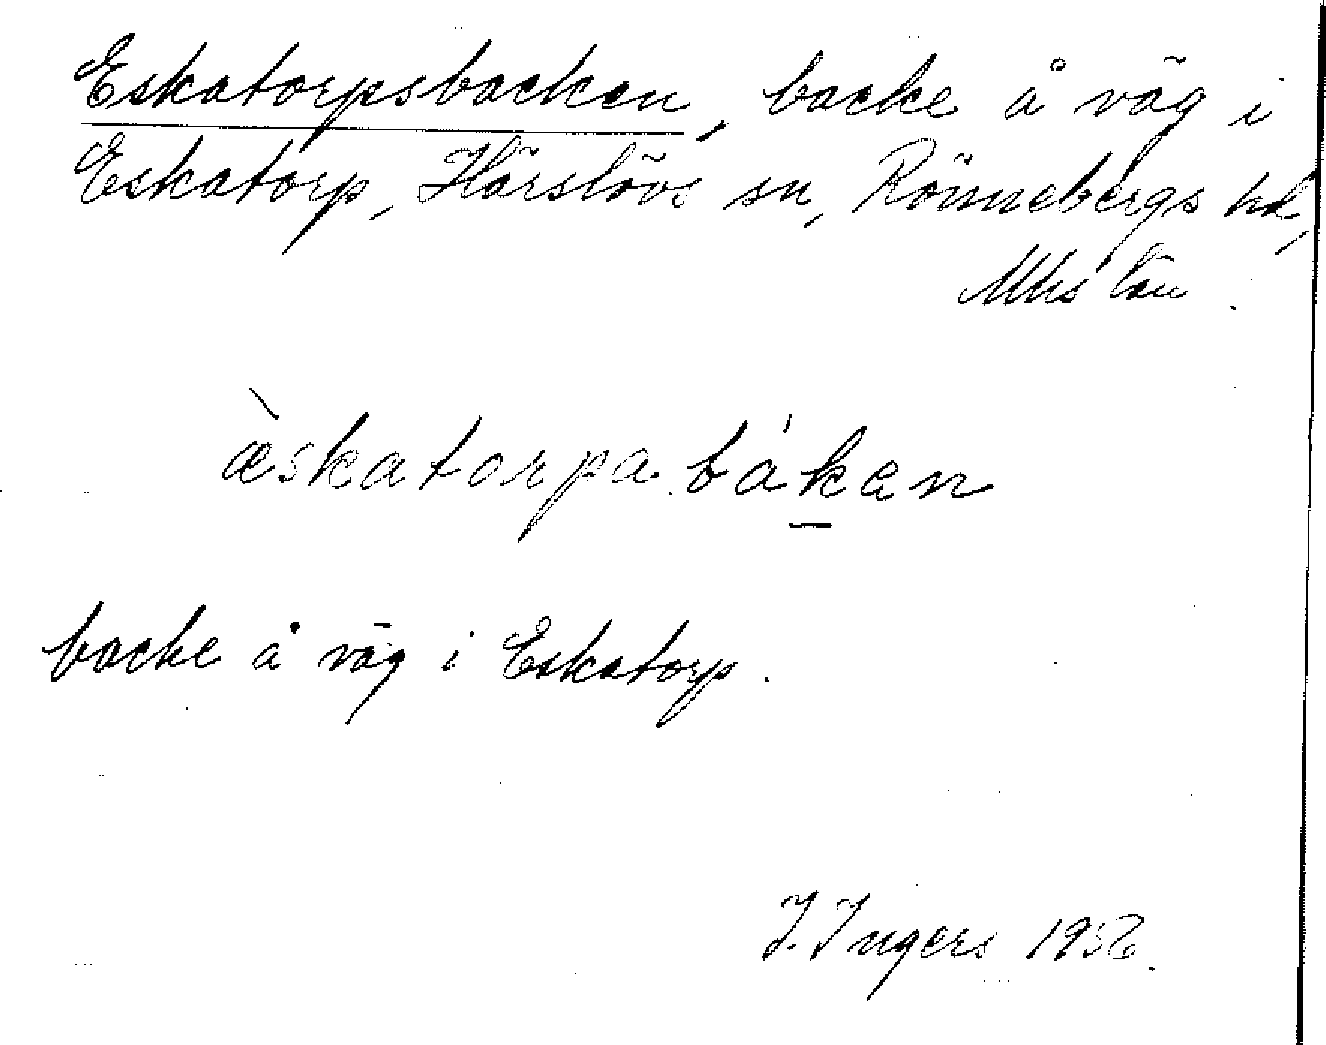 Eskatorpsbacken, backe å väg i
Eskatorp, Härslövs sn, Rönnebergs hd,
Mhs län.
æ̀skatorpabákan
backe å väg i Eskatorp.
I. Ingers 1956.